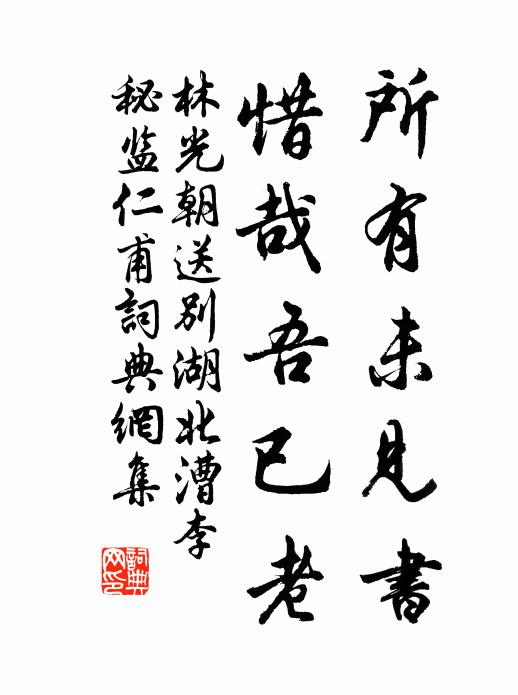 所有未見書
惜哉吾已老
林光朝送別湖北漕李
秘监仁甫詞典網集
詞典网印